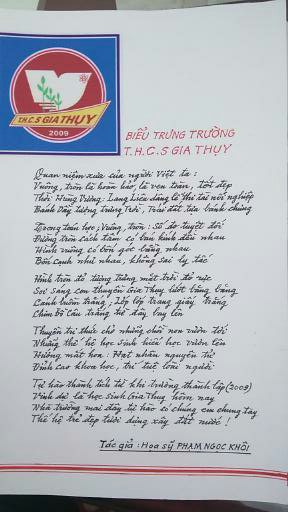 T.H.C.S GIA THỤY
2009
BIỂU TRƯNG TRƯỜNG
T.H.C.S GIA THỤY
Quan niệm xưa của người Việt ta:
Vuông, tròn là hoàn hảo, là vẹn toàn, tốt đẹp
Thời Hùng Vương: Lang Liêu dâng lễ thi tài nối nghiệp
Bánh Dầy tượng trưng Trời, Trái đất tựa bánh chưng
Trong toán học; Vuông, tròn: Số đo tuyệt đối
Đường tròn cách tâm có bán kính đều nhau
Hình vuông có bốn góc bằng nhau
Bốn cạnh như nhau, không sai ly tấc
Hình tròn đỏ tượng trưng mặt trời đỏ rực
Soi sáng con thuyền Gia Thụy lướt băng băng
Cánh buồm trắng; Lớp lớp trang giấy trắng
Chim Bồ Câu trắng thế bay lên
Thuyền tri thức chở những chồi non vươn tới
Những thế hệ học sinh hiếu học vươn lên
Hướng mặt hoa: Hạt nhân nguyên tử
Đỉnh cao khoa học, trí tuệ loài người
Tự hào thành tích từ khi trường thành lập (2009)
Vinh dự là học sinh Gia Thụy hôm nay
Nhà trường mai đây tự hào có chúng em chung tay
Thế hệ trẻ đẹp tươi dựng xây đất nước!
Tác giả: Họa sỹ PHẠM NGỌC KHÔI